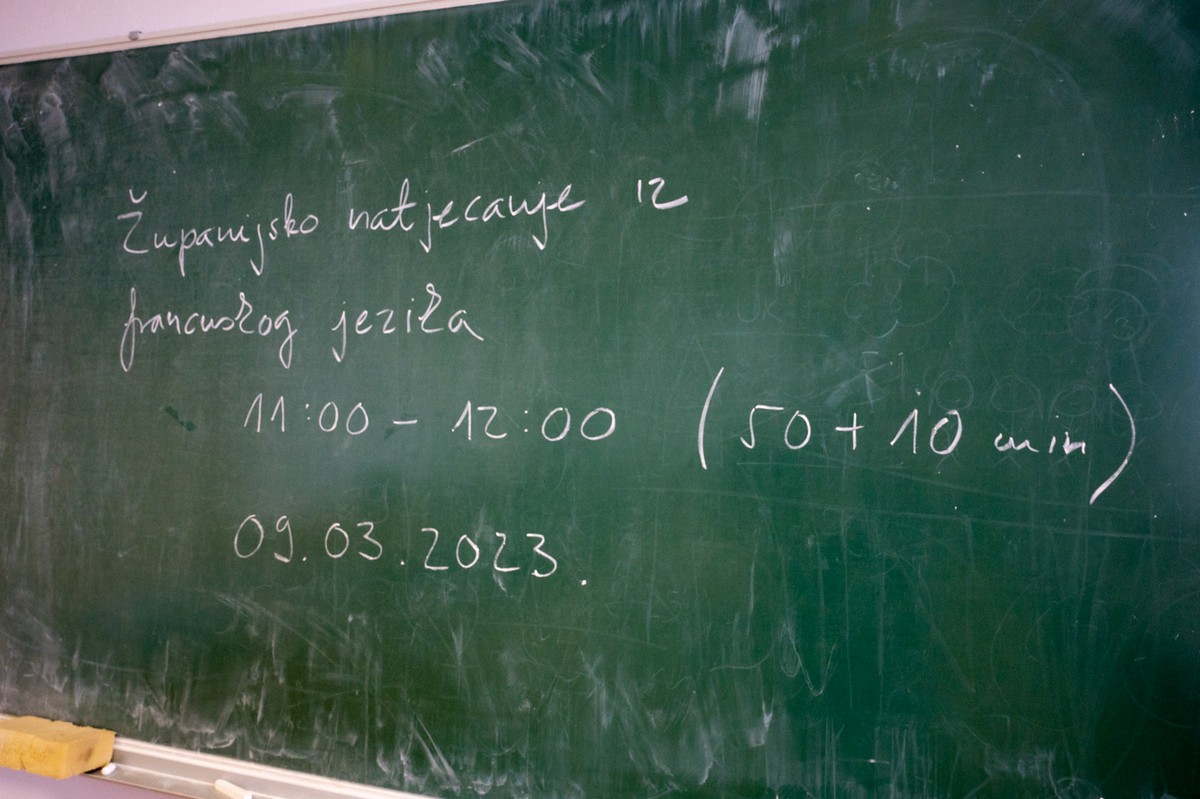 Županijsko natjecanje iz
francuskog jezika
11:00 - 12:00 (50 + 10 min)
09.03.2023.